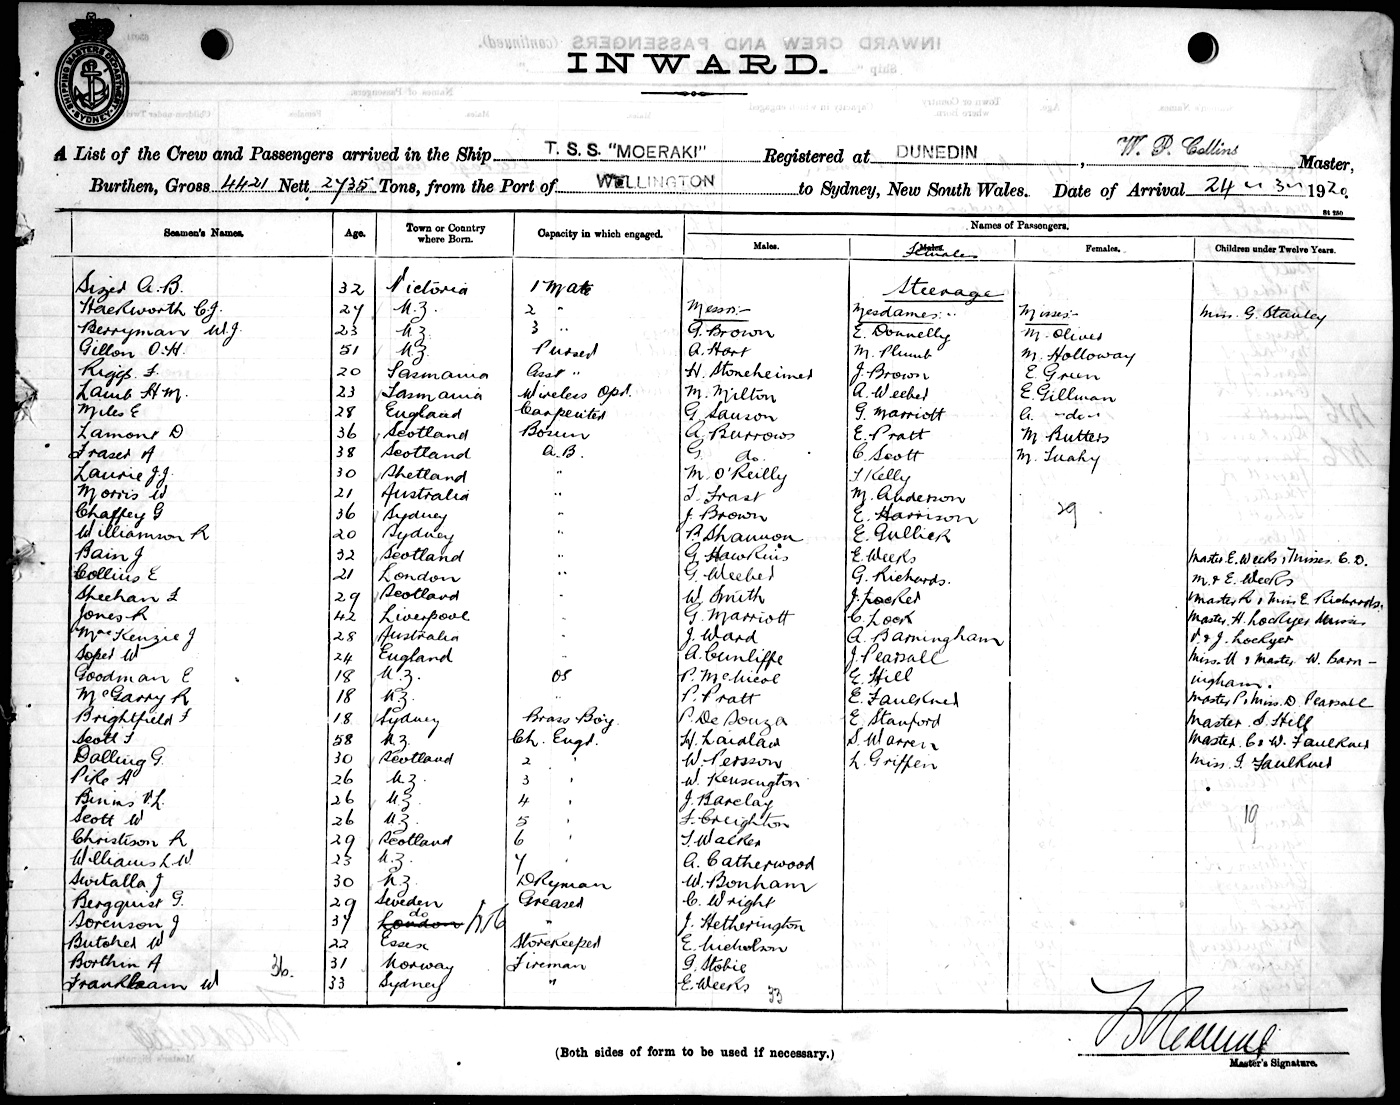 SHIPPING MASTERS DEPARTMENT SYDNEY
INWARD.
A List of the Crew and Passengers arrived in the Ship T. S. S. "MOERAKI" Registered at DUNEDIN, W. P. Collins Master,
Burthen, Gross 4421 Nett 2735 Tons, from the Port of WELLINGTON to Sydney, New South Wales. Date of Arrival 24 " 3 " 1920.
St 250
Seamen's Names. Age. Town or Country where Born. Capacity in which engaged. Names of Passengers.
Males. Males. Females Females. Children under Twelve Years.
Sizer A.B. 32 Victoria 1 Mate Steerage
Hackworth C.J. 27 N.Z. 2 " Messrs:- Mesdames:- Misses:- Miss G. Stanley
Berryman W.J. 23 N.Z. 3 " G. Brown E. Donnelly M. Oliver
Gillon O.H. 51 N.Z. Purser A. Hart M. Plumb M. Holloway
Riggs F. 20 Tasmania Asst " H. Stoneheimer J. Brown E. Green
Lamb H M. 23 Tasmania Wireless Opr. M. Milton A. Weeber E. Gillman
Miles E 28 England Carpenter G. Sauson G. Marriott A. -do-
Lamond D 36 Scotland Bosun A. Burrows E. Pratt M. Butters
Fraser A 38 Scotland A.B. G. do. C. Scott M. Tuahy
Laurie J.J. 30 Shetland " M. O'Reilly T Kelly
Morris W 21 Australia " T. Frast M. Anderson
Chaffey G 36 Sydney " J. Brown E. Harrison 29
Williamson R 20 Sydney " P. Shannon E. Gullick
Bain J 32 Scotland " G. Hawkins E. Weeks Master E. Weeks, Misses C. D.
Collins E 21 London " G. Weeber G. Richards. M. & E. Weeks
Sheehan F 29 Scotland " W. Smith J. Locker Master R, Miss E. Richards.
Jones R 42 Liverpool " G. Marriott C. Lock Master H. Lockyer Misses
MacKenzie J 28 Australia " J. Ward A. Barningham V. & J. Lockyer
Soper W 24 England " A. Cunliffe J. Pearsall Miss M & Master W. Barn-
Goodman E 18 N.Z. OS P. McNicol E. Hill ingham.
McGarry R 18 N.Z. P. Pratt E. Faulkner Master P, Miss D. Pearsall
Brightfield F 18 Sydney Brass Boy. P. De Souza E. Stanford Master S. Hill
Scott F 58 N.Z. Ch. Engr. H. Laidlaw S. Warren Master C. & W. Faulkner
Dalling G. 30 Scotland 2 " W. Persson L. Griffen Miss I. Faulkner
Pike A 26 N.Z. 3 " W. Kensington
Binns V.L. 26 N.Z. 4 " J. Barclay
Scott W 26 N.Z. 5 " F. Creighton 19
Christison R 29 Scotland 6 " T. Walker
Williams L W 23 N.Z. 7 " A. Catherwood
Switalla J 30 N.Z. Dkyman W. Bonham
Bergquist G. 29 Sweden Greaser C. Wright
Sorenson J 37 London do " J. Hetherington
Butcher W 22 Essex Storekeeper E. Nicholson
Borthin A 36. 31 Norway Fireman G. Stobie
Frankham W 33 Sydney " E. Weeks 33
(Both sides of form to be used if necessary.)
Master's Signature.